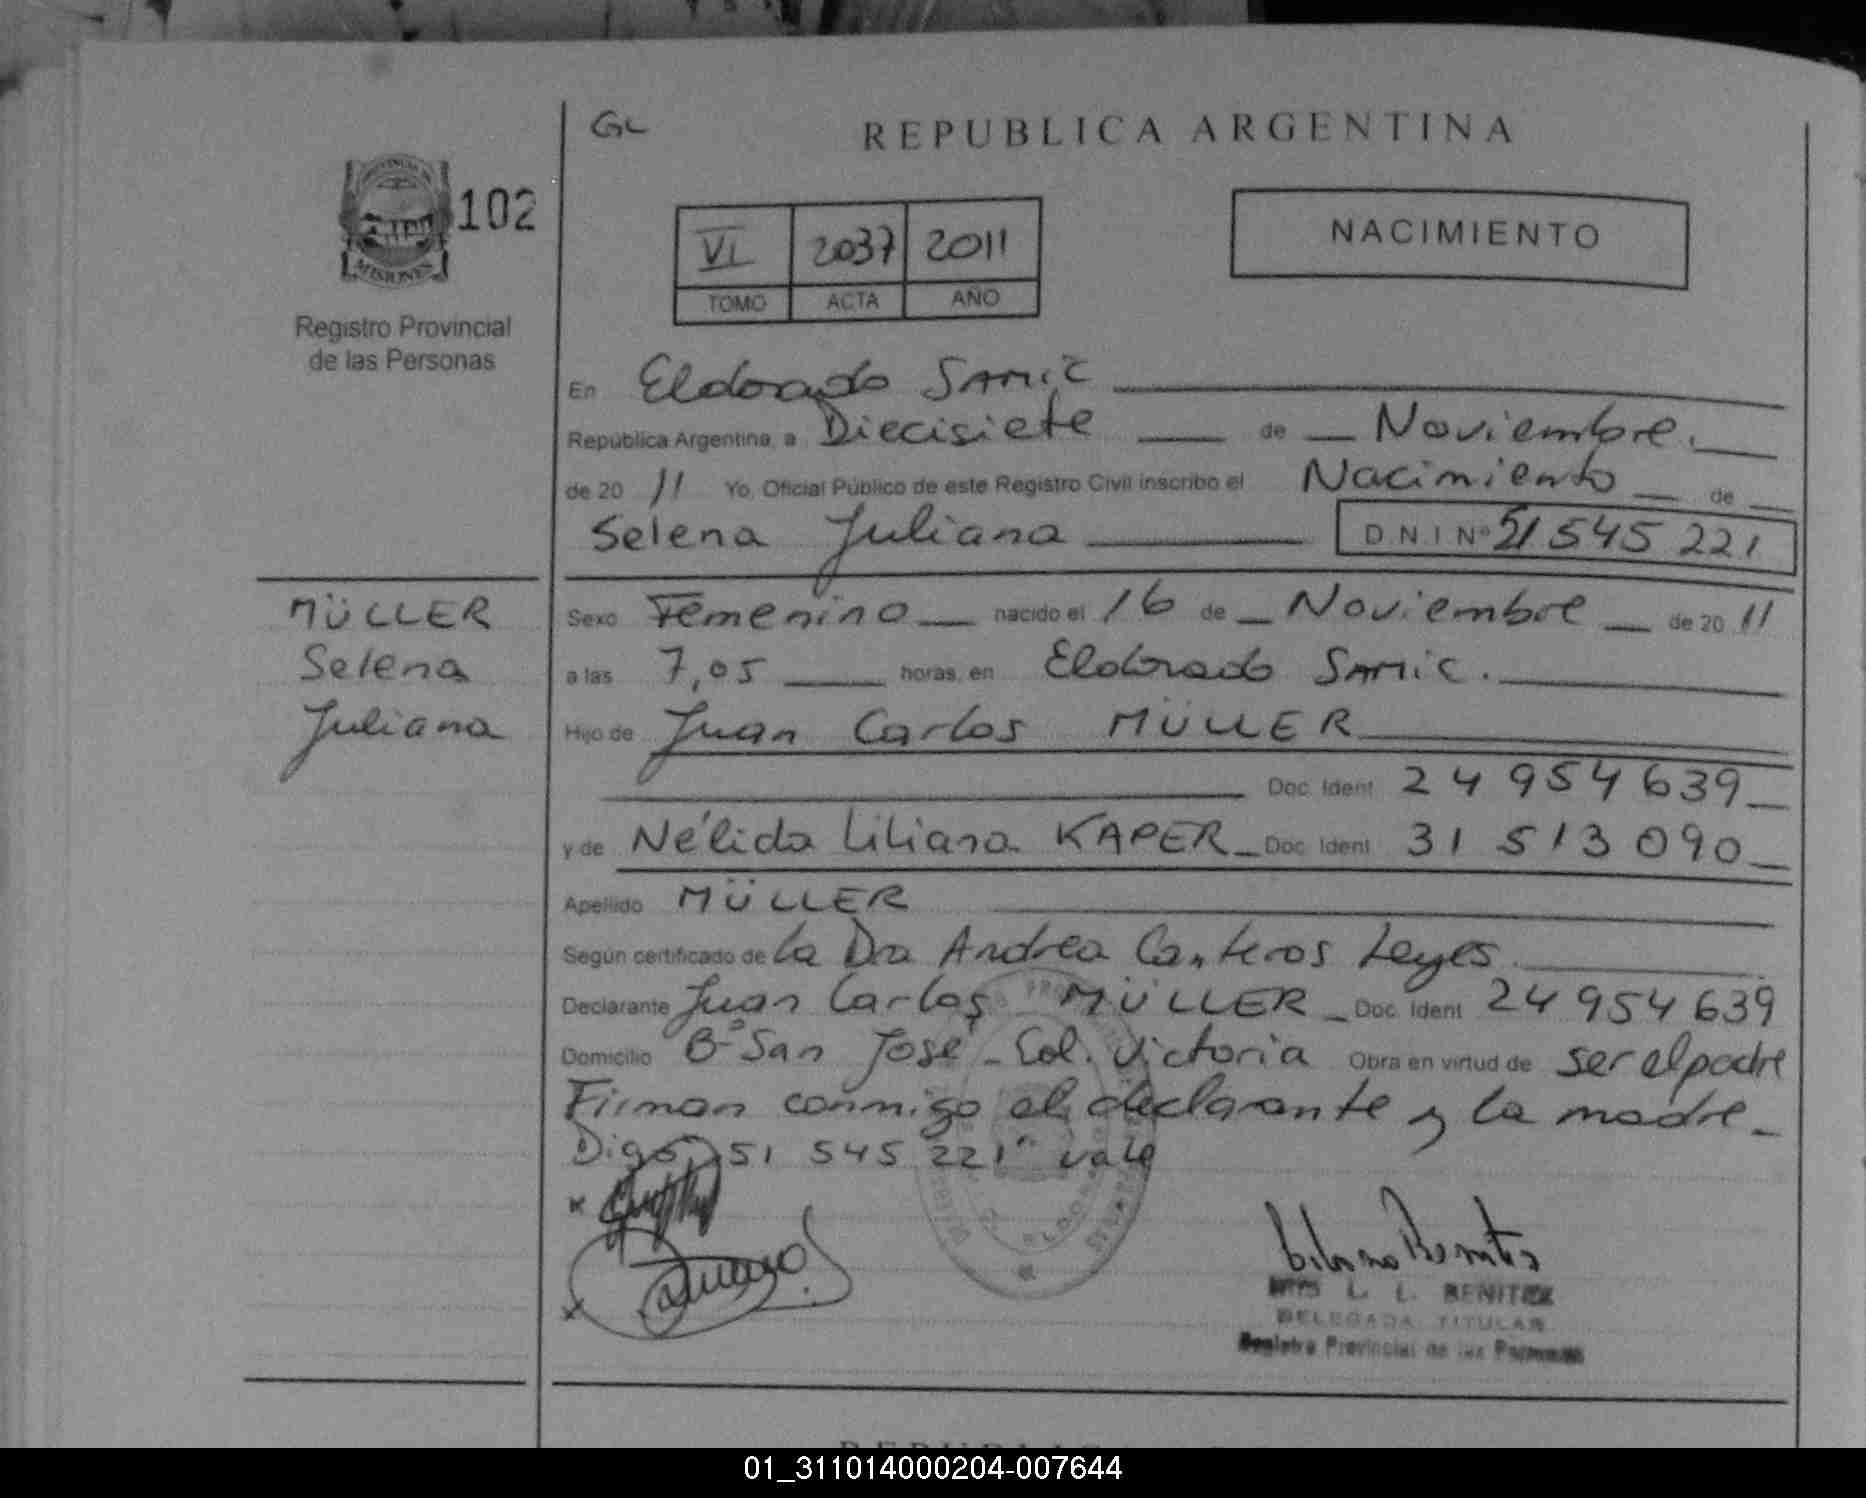 GL
REPUBLICA ARGENTINA
102
MISIONES
Registro Provincial
de las Personas
VI 2037 2011
TOMO ACTA AÑO
NACIMIENTO
En Eldorado SAMIC
República Argentina, a Diecisiete de Noviembre.
de 20 11 Yo, Oficial Público de este Registro Civil inscribo el Nacimiento de
Selena Juliana D.N.I Nº 51 545 221
MÜLLER
Selena
Juliana
Sexo Femenino nacido el 16 de Noviembre de 20 11
a las 7,05 horas, en Eldorado SAMIC.
Hijo de Juan Carlos MÜLLER
Doc. Ident 24 954 639
y de Nélida Liliana KAPER Doc. Ident 31 513 090
Apellido MÜLLER
Según certificado de la Dra Andrea Canteros Leyes
Declarante Juan Carlos MÜLLER Doc. Ident 24 954 639
Domicilio Bº San José - Col. Victoria Obra en virtud de ser el padre
Firman conmigo el declarante y la madre
Digo: "51 545 221" vale
L. L. BENITEZ
DELEGADA TITULAR
Registro Provincial de las Personas
01_311014000204-007644